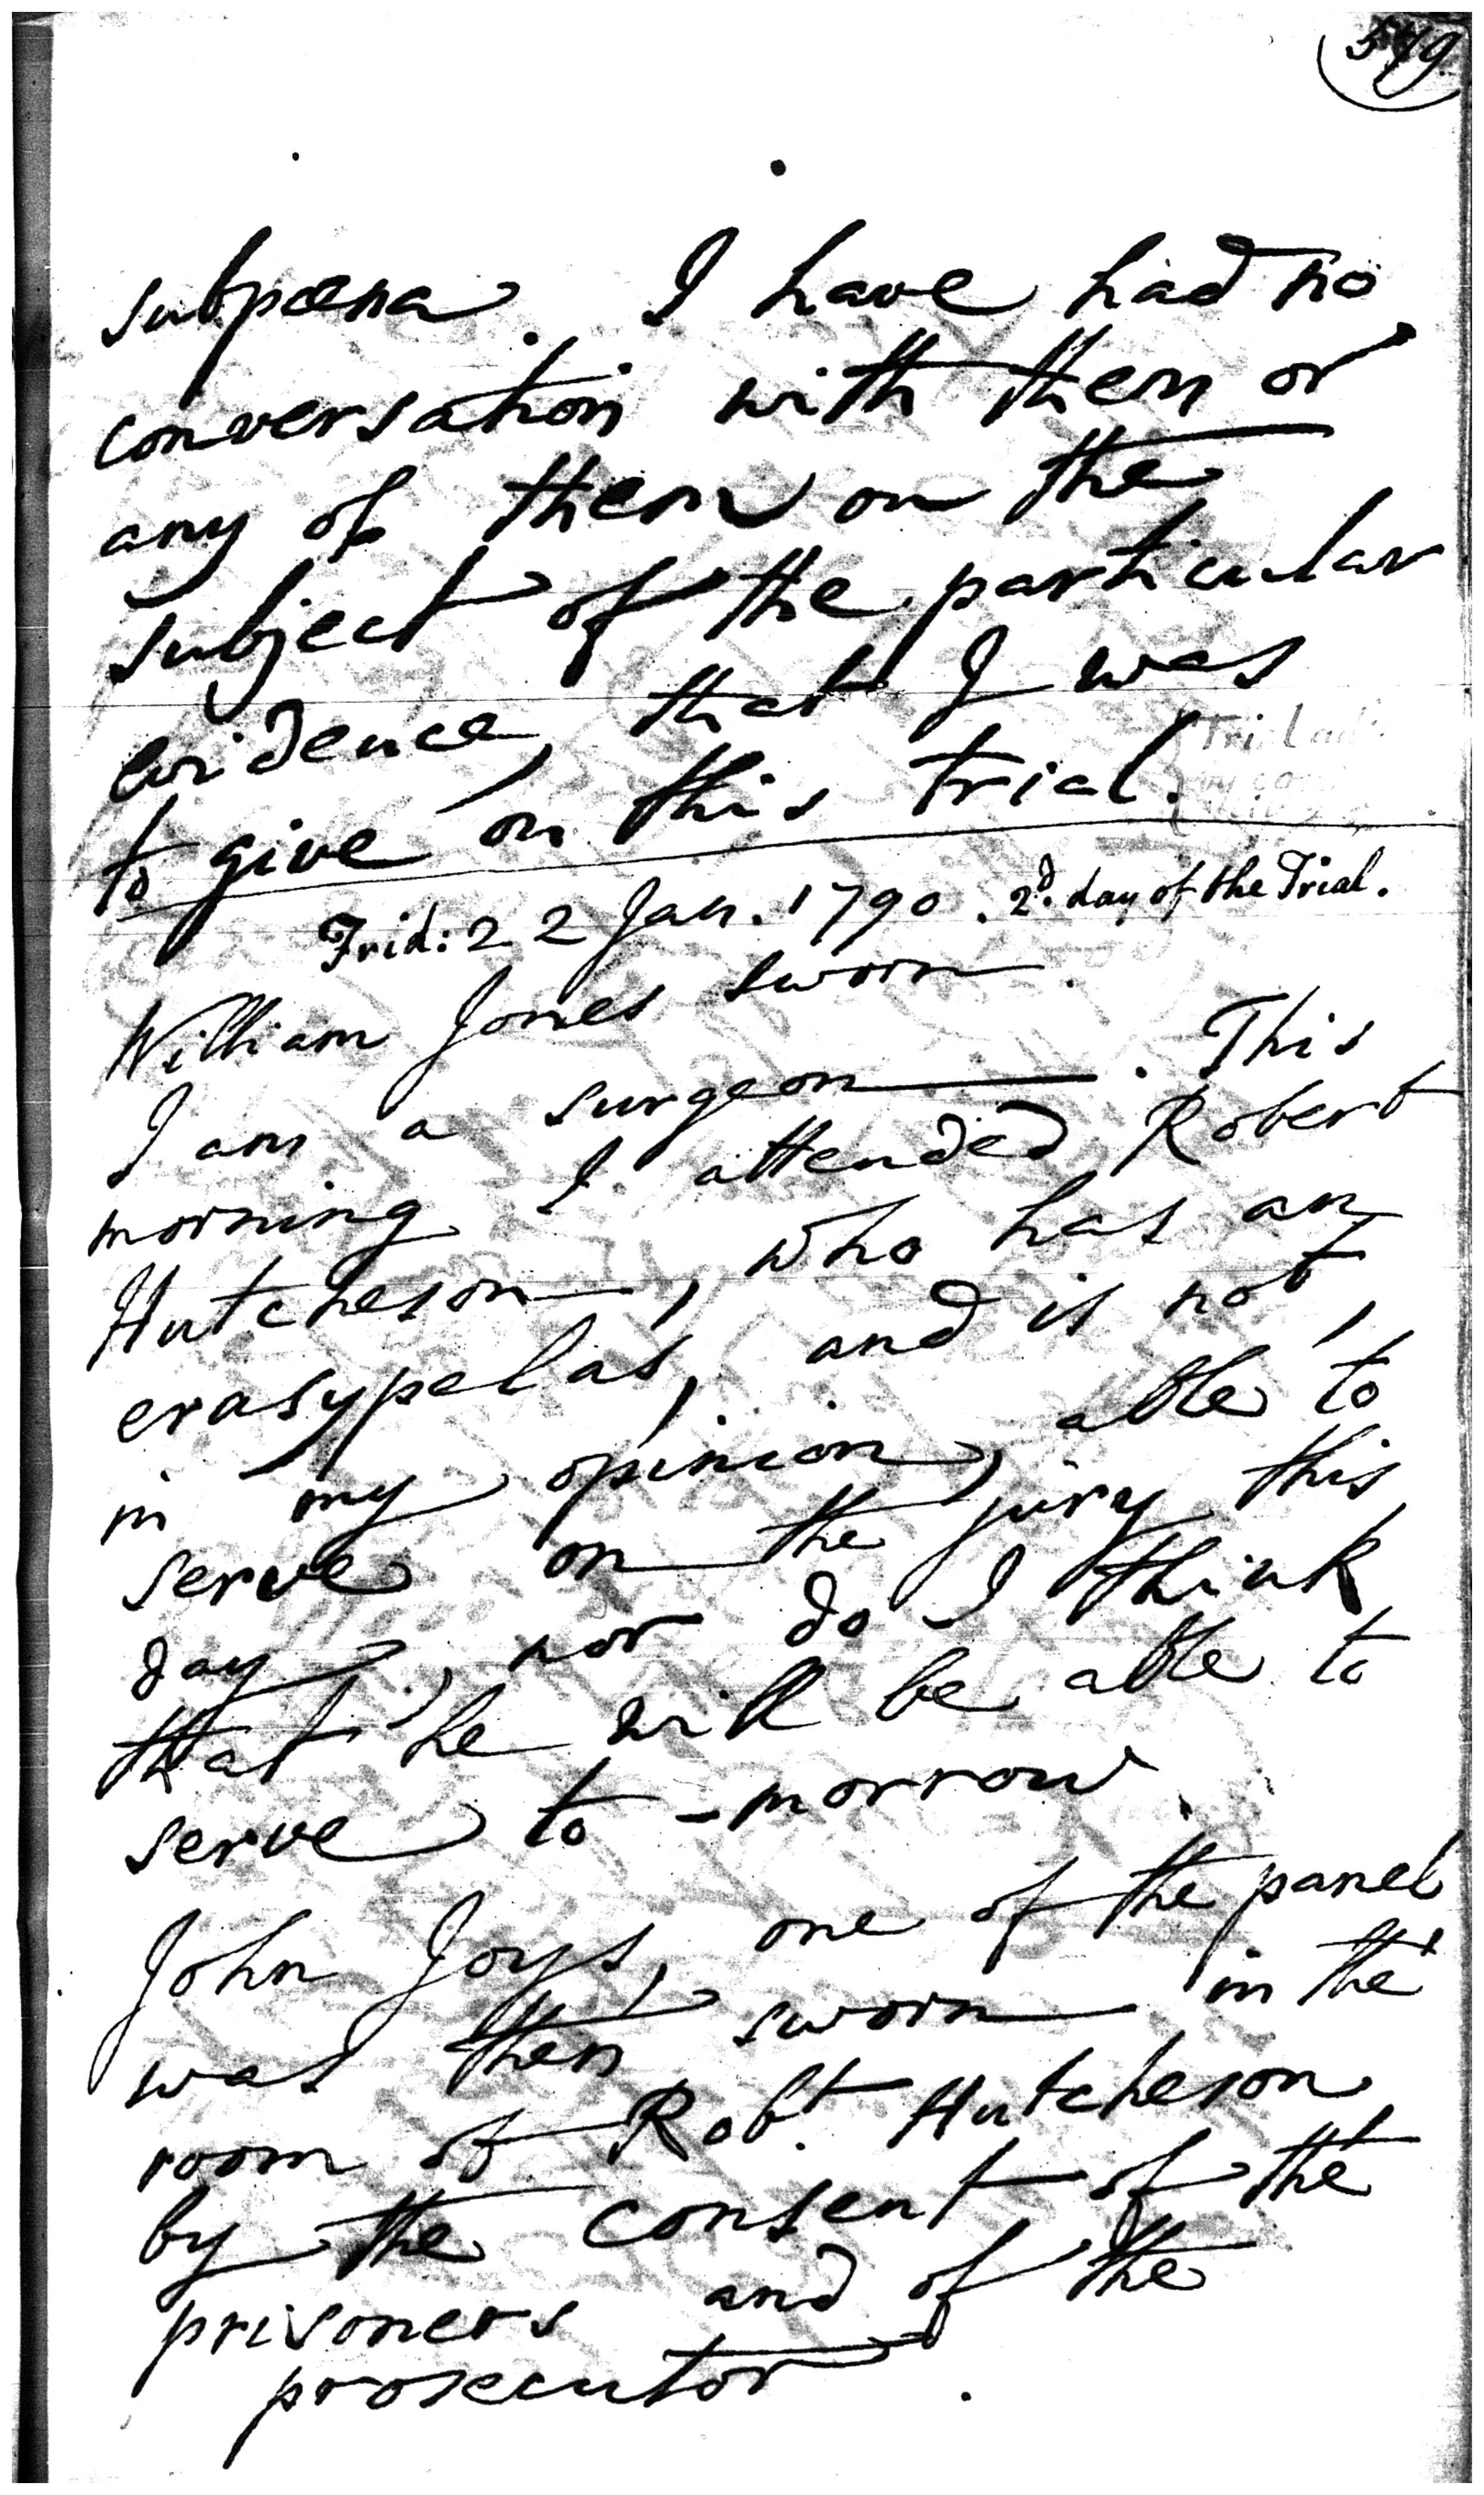 549
subpœna. I have had no
conversation with them or
any of them on the
subject of the particular
evidence, that I was
to give on this trial.
Frid: 22 Jan. 1790. 2d. day of the Trial.
William Jones sworn.
I am a surgeon. This
morning I attended Robert
Hutcheson, who has an
erasypelas, and is not,
in my opinion, able to
serve on the jury this
day, nor do I think
that he will be able to
serve to-morrow.
John Joys, one of the panel
was then sworn in the
room of Robt. Hutcheson
by the consent of the
prisoners and of the
prosecutor.